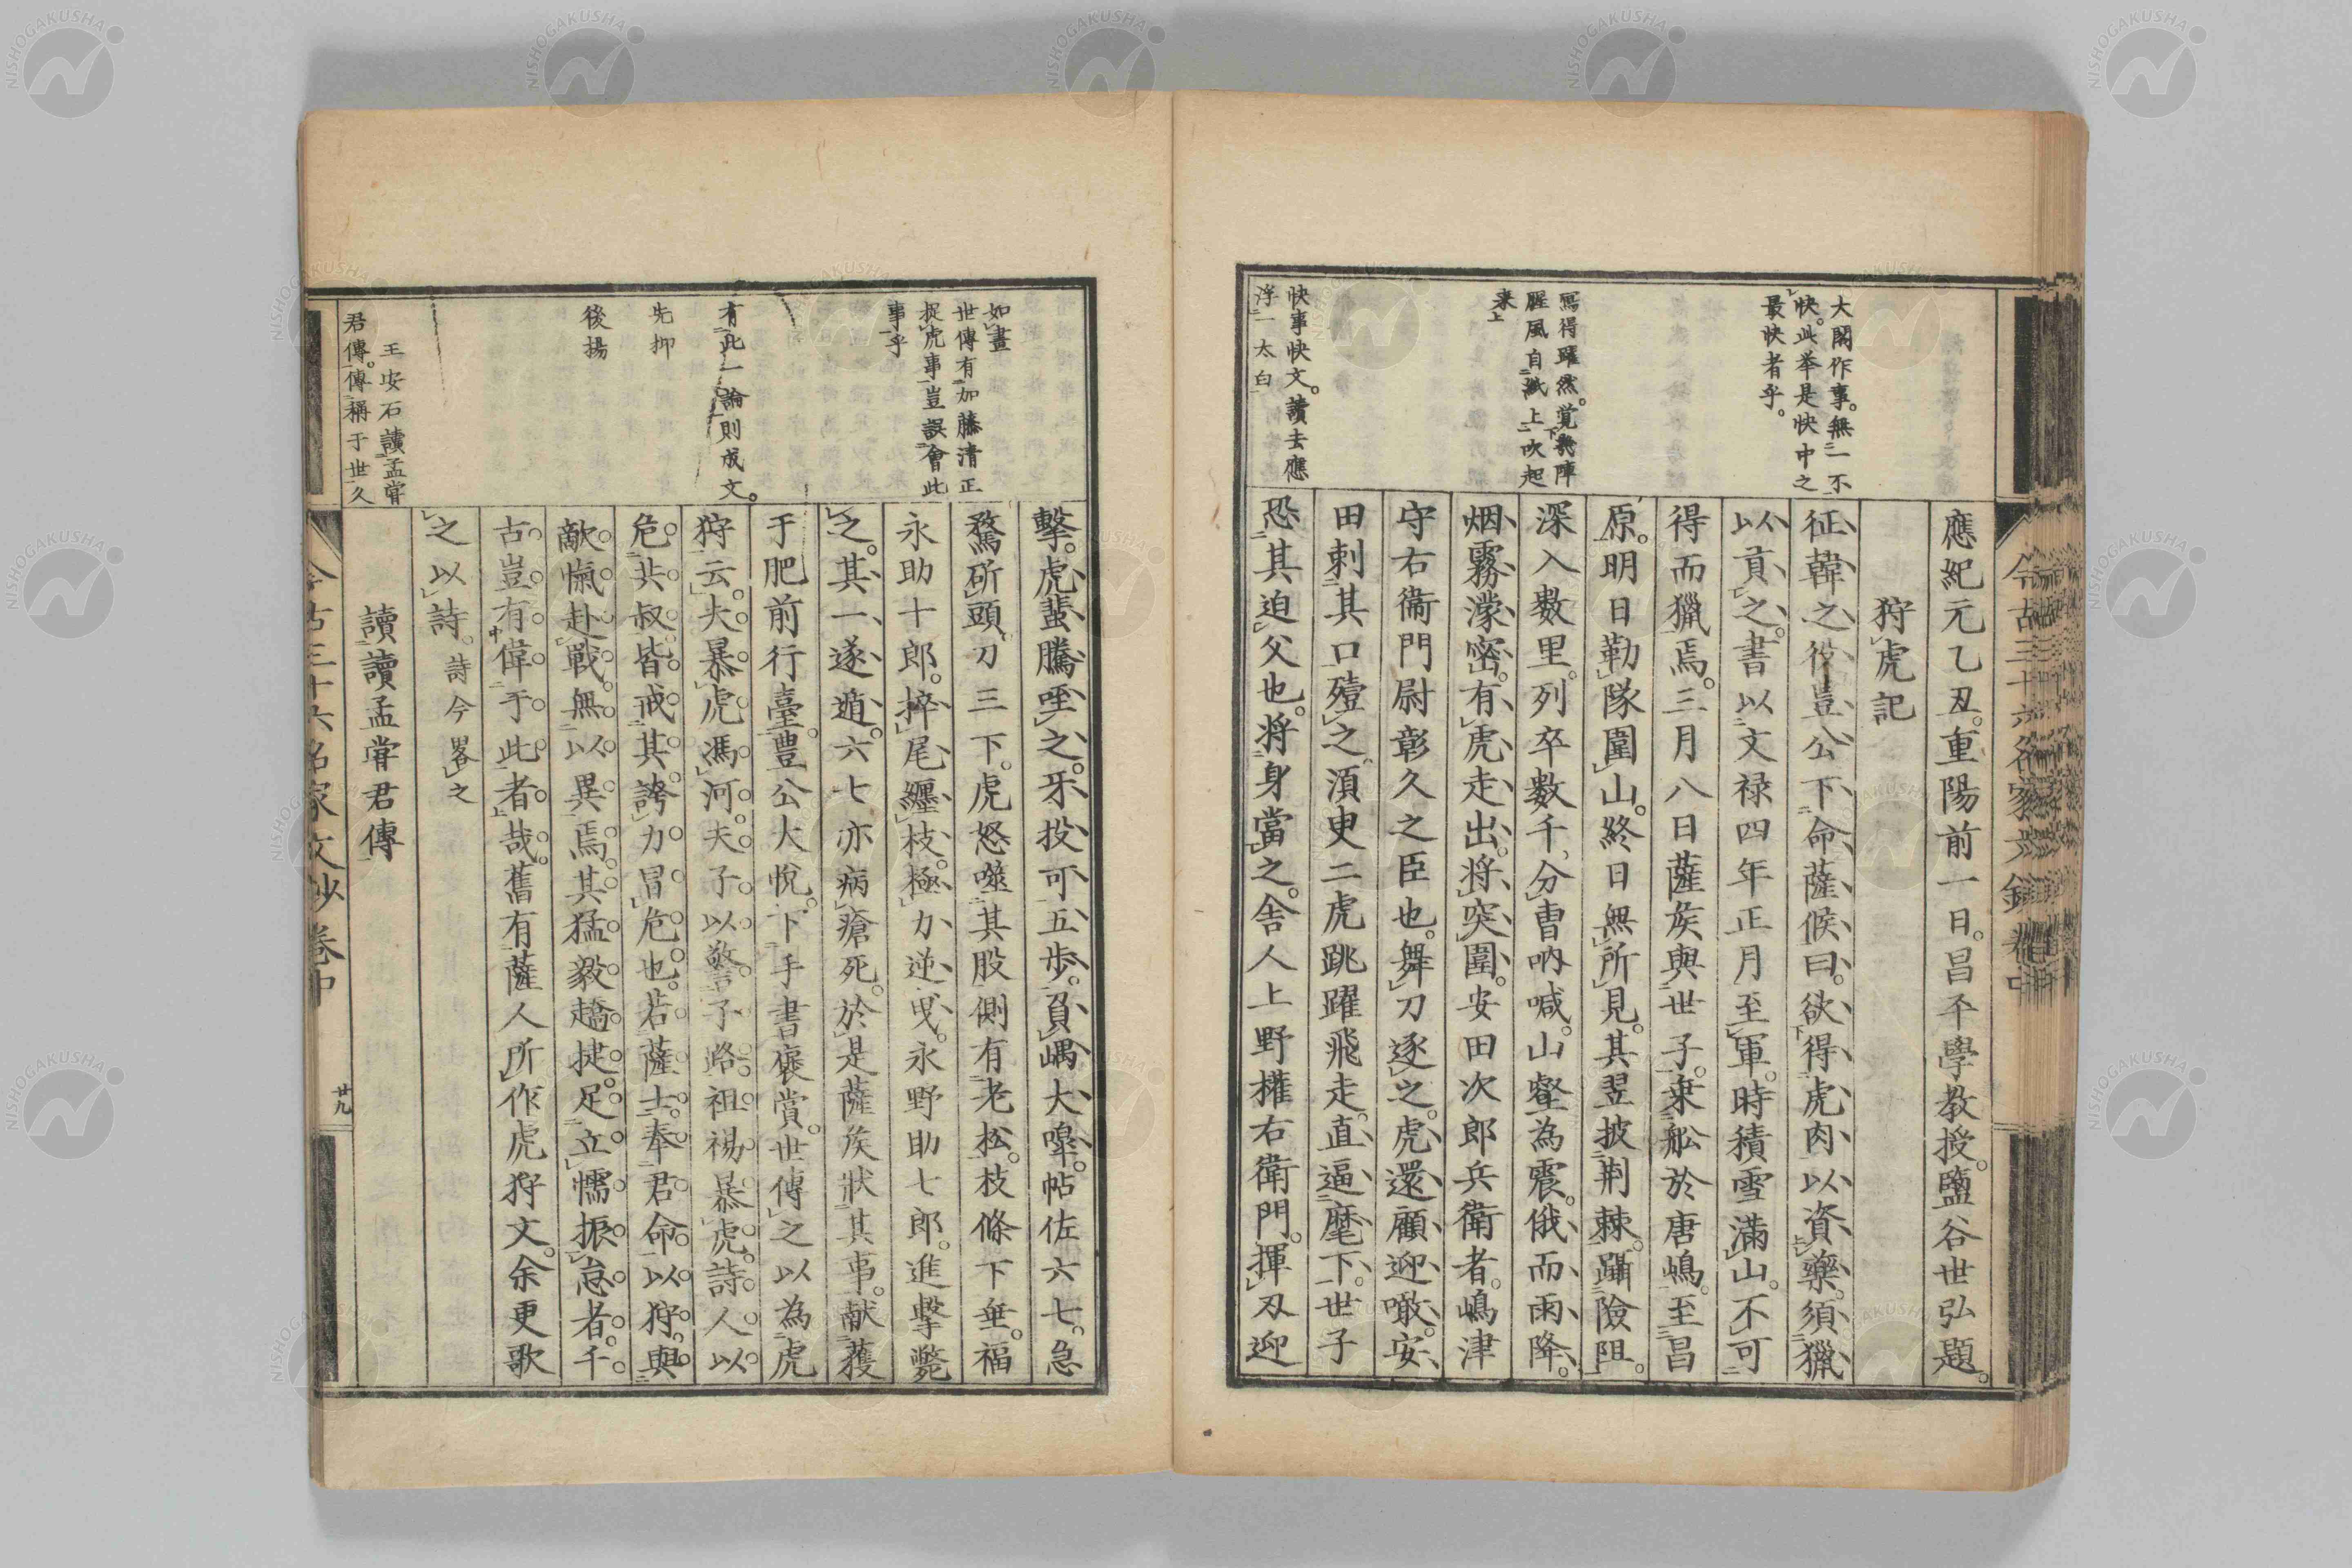 應紀元乙丑。重陽前一日。昌平學教授。鹽谷世弘題。
狩虎記
征韓之役豈公下命薩候曰。欲得虎肉以資藥。須獵
以貢之。書以文禄四年正月至軍。時積雪滿山。不可
得而獵焉。三月八日薩矦與世子。乘舩於唐嶋。至昌
原。明日勒隊圍山。終日無所見。其翌披荆棘。躡險阻。
深入數里。列卒數千。分曺吶喊。山壑為震。俄而雨降。
烟霧濛密。有虎走出。將突圍。安田次郎兵衛者。嶋津
守右衞門尉彰久之臣也。舞刀逐之。虎還顧迎噉。安
田刺其口殪之。須臾二虎跳躍飛走。直逼麾下。世子
恐其迫父也。将身當之。舎人上野權右衛門。揮刃迎
大閤作事。無一不
快。此举是快中之
最快者乎。
寫得躍然。覚無陣
腥風自紙上吹起
来
快事快文。讀去應
浮一太白
擊。虎蜚騰咥之。牙投可五歩。負嵎大嘷。帖佐六七。急
騖斫頭。刀三下。虎怒噬其股。側有老松。枝條下垂。福
永助十郎。捽尾纏枝。極力逆曳。永野助七郎。進擊斃
之。其一遂遁。六七亦病瘡死。於是薩矦狀其事。献獲
于肥前行臺。豊公大悅。下手書褒賞。世傳之以為虎
狩云。夫暴虎馮河。夫子以警子路。袒裼暴虎。詩人以
危共叔。皆戒其誇力冒危也。若薩士。奉君命以狩。與
敵愾赴戰。無以異焉。其猛毅趫捷。足立懦振怠者。千
古豈有偉于此者哉。舊有薩人所作虎狩文。余更歌
之以詩。詩今畧之
讀讀孟甞君傳
如畫
世傳有加藤清正
捉虎事。豈誤會此
事乎
有此一論則成文。
先抑
後揚
王安石讀孟甞
君傳。傳稱于世久
今古三十六名家文抄卷中
廿九